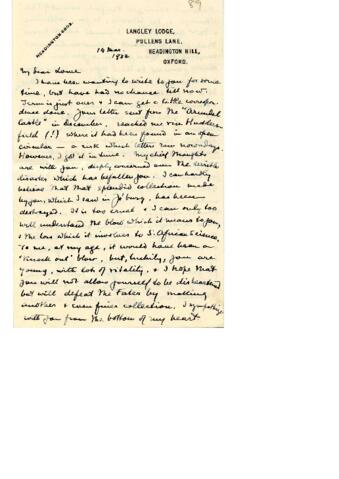 89
HEADINGTON 6203.
LANGLEY LODGE,
PULLENS LANE,
HEADINGTON HILL,
OXFORD.
14 Mar.
1932
My dear Lowe
I have been wanting to write to you for some
time, but have had no chance till now.
Term is just over & I can get a little correspon-
dence done. Your letter sent from the "Arundel
Castle" in December, reached me via Hudders-
field (!!) where it had been found in an open
circular — a risk which letters run nowadays.
However, I got it in time. My chief thoughts
are with you, deeply concerned over the terrible
disaster which has befallen you. I can hardly
believe that that splendid collection made
by you, which I saw in Jo'burg, has been
destroyed. It is too cruel & I can only too
well understand the blow which it means to you,
& the loss which it involves to S. African Science.
To me, at my age, it would have been a
"knock out" blow, but, luckily, you are
young, with lots of vitality, & I hope that
you will not allow yourself to be disheartened
but will defeat the Fates by making
another & even finer collection. I sympathise
with you from the bottom of my heart